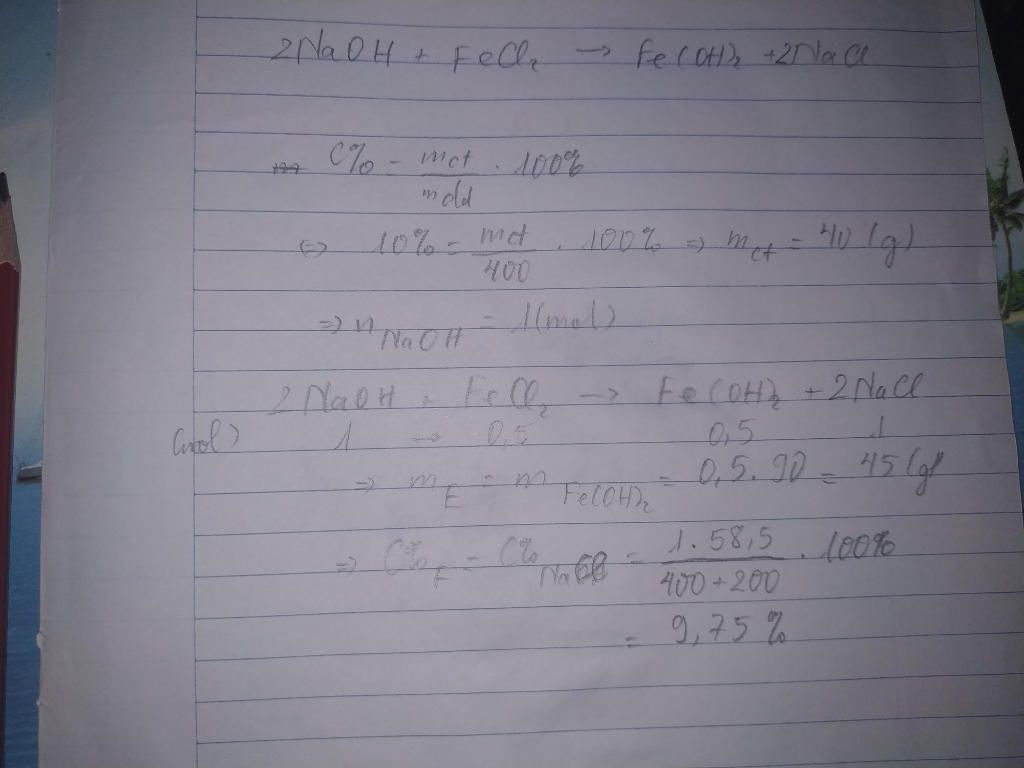 2NaOH + FeCl₂ → Fe(OH)₂ + 2NaCl
C% = mct/mdd . 100%
⇔ 10% = mct/400 . 100% ⇒ mct = 40 (g)
⇒ nNaOH = 1 (mol)
2NaOH + FeCl₂ → Fe(OH)₂ + 2NaCl
(mol) 1 → 0,5 0,5 1
⇒ mE = mFe(OH)₂ = 0,5.90 = 45 (g)
⇒ C%F = C%NaCl = 1.58,5/400+200 . 100%
= 9,75%